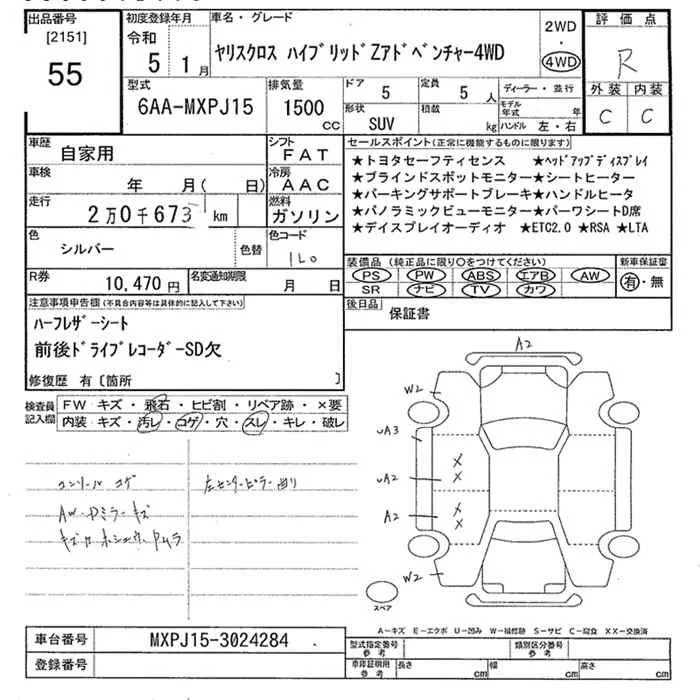 出品番号 初度登録年月 車名・グレード 2WD 評価点
[2151] 令和 ・
55 5 1月 ヤリスクロス ハイブリッドZアドベンチャー4WD 4WD R
型式 排気量 ドア 5 定員 5人 ディーラー・並行 外装 内装
6AA-MXPJ15 1500cc 形状 SUV 積載 kg モデル年式 年 C C
ハンドル 左・右
車歴 自家用 シフト FAT セールスポイント(正常に機能するものに限ります)
車検 年 月( 日) 冷房 AAC ★トヨタセーフティセンス ★ヘッドアップディスプレイ
走行 2万0千673 km 燃料 ガソリン ★ブラインドスポットモニター★シートヒーター
★パーキングサポートブレーキ★ハンドルヒータ
★パノラミックビューモニター★パーワシートD席
★デイスプレイオーディオ ★ETC2.0 ★RSA ★LTA
色 シルバー 色替 色コード 1L0
装備品(純正品に限り○をつけてください) 新車保証書
PS PW ABS エアB AW 有・無
SR ナビ TV カワ
R券 10,470円 名変通知期限 月 日
後日品 保証書
注意事項申告欄(不具合内容等は具体的に記入して下さい)
ハーフレザーシート
前後ドライブレコーダーSD欠
修復歴 有〔箇所 〕
検査員記入欄 FW キズ・飛石・ヒビ割・リペア跡・×要
内装 キズ・汚レ・コゲ・穴・スレ・キレ・破レ
コンソール コゲ 左センターピラー曲り
AW・Dミラーキズ
A2
W2
UA3
X
UA2 X
A2 X
X
W2
スペア
A-キズ E-エクボ U-凹み W-補修跡 S-サビ C-腐食 XX-交換済
車台番号 MXPJ15-3024284
登録番号
型式指定番号参考 類別区分番号参考
車庫証明用参考 長さ cm 幅 cm 高さ cm